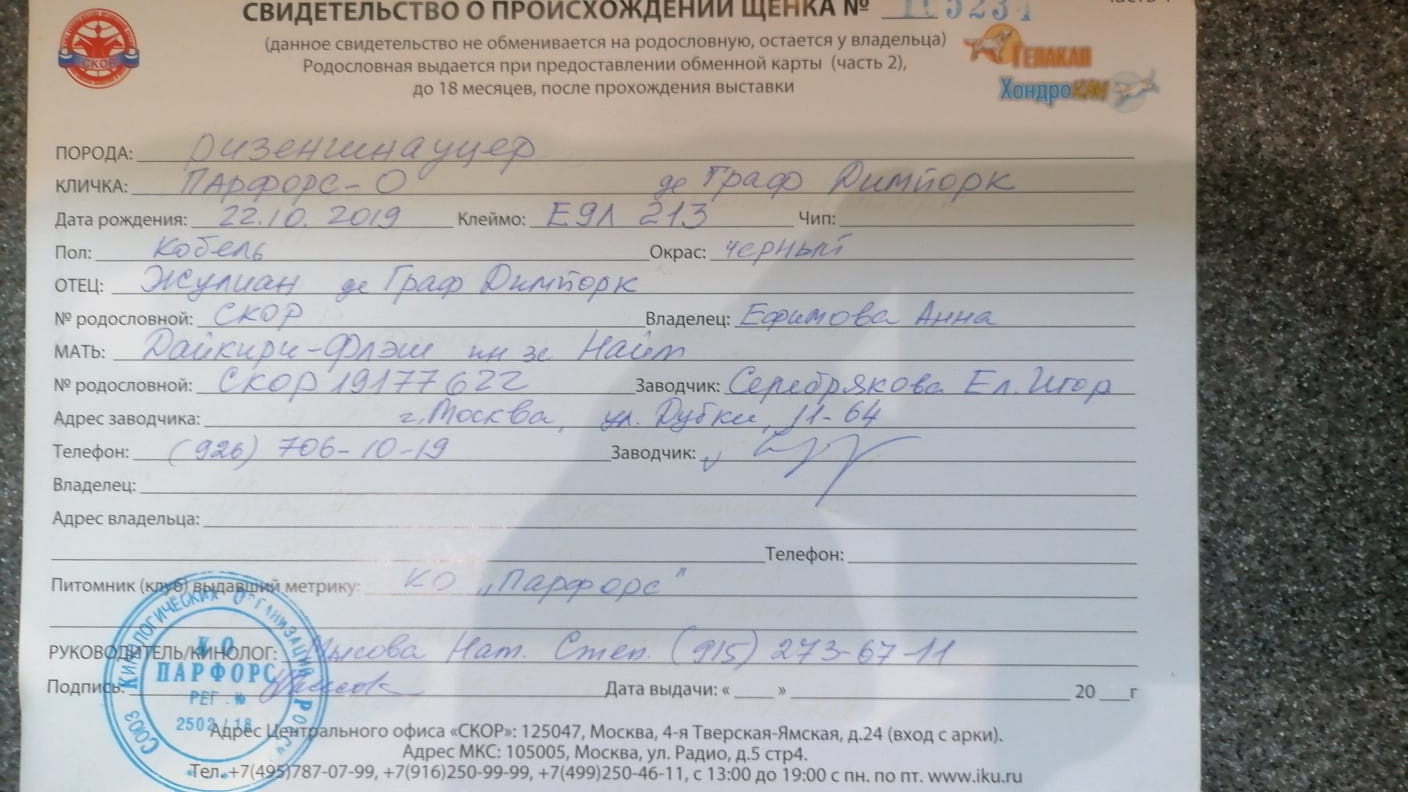 СВИДЕТЕЛЬСТВО О ПРОИСХОЖДЕНИИ ЩЕНКА №
(данное свидетельство не обменивается на родословную, остается у владельца)
Родословная выдается при предоставлении обменной карты (часть 2),
до 18 месяцев, после прохождения выставки
СКОР
ГЕПАКАН
ХондроКАН
ПОРОДА: ризеншнауцер
КЛИЧКА: ПАРФОРС-О де Граф Димторк
Дата рождения: 22.10.2019 Клеймо: ЕЯЛ 213 Чип:
Пол: кобель Окрас: черный
ОТЕЦ: Жулиан де Граф Димторк
№ родословной: СКОР Владелец: Ефимова Анна
МАТЬ: Дайкири-Флэш
№ родословной: СКОР 19177622 Заводчик: Серебрякова Ел. Игор
Адрес заводчика: г. Москва, ул. Дубки, 11-64
Телефон: (926) 706-10-19 Заводчик:
Владелец:
Адрес владельца:
Телефон:
Питомник (клуб) выдавший метрику: КО „Парфорс"
РУКОВОДИТЕЛЬ/КИНОЛОГ: Мысова Нат. Степ. (915) 273-67-11
Подпись: Дата выдачи: « » 20 г
СОЮЗ КИНОЛОГИЧЕСКИХ ОРГАНИЗАЦИЙ РОССИИ
КО
ПАРФОРС
РЕГ. №
2502/18
Адрес Центрального офиса «СКОР»: 125047, Москва, 4-я Тверская-Ямская, д.24 (вход с арки).
Адрес МКС: 105005, Москва, ул. Радио, д.5 стр4.
Тел. +7(495)787-07-99, +7(916)250-99-99, +7(499)250-46-11, с 13:00 до 19:00 с пн. по пт. www.iku.ru